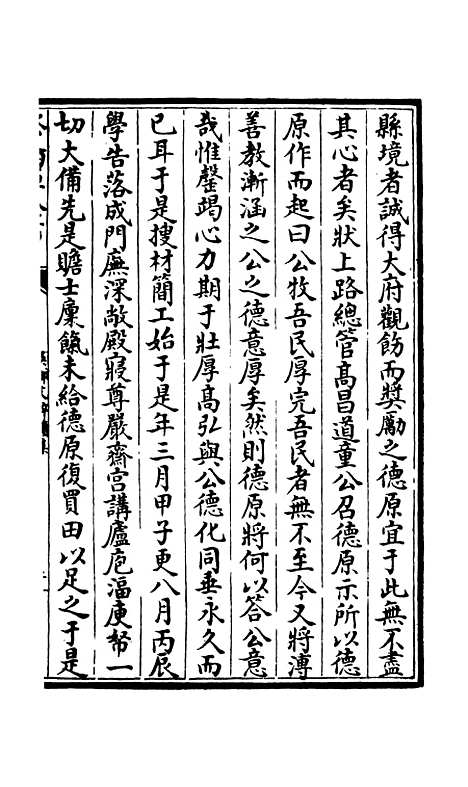 縣境者誠得大府觀飭而奬勵之德原宜于此無不盡
其心者矣狀上路總管髙昌道童公召德原示所以德
原作而起曰公牧吾民厚完吾民者無不至今又將溥
善教漸涵之公之德意厚矣然則德原將何以答公意
哉惟罄竭心力期于壯厚髙弘與公德化同垂永久而
已耳于是搜材簡工始于是年三月甲子更八月丙辰
學告落成門廡深敞殿寢尊嚴齋宮講廬庖湢庾帑一
切大備先是贍士廩餼未給德原復買田以足之于是